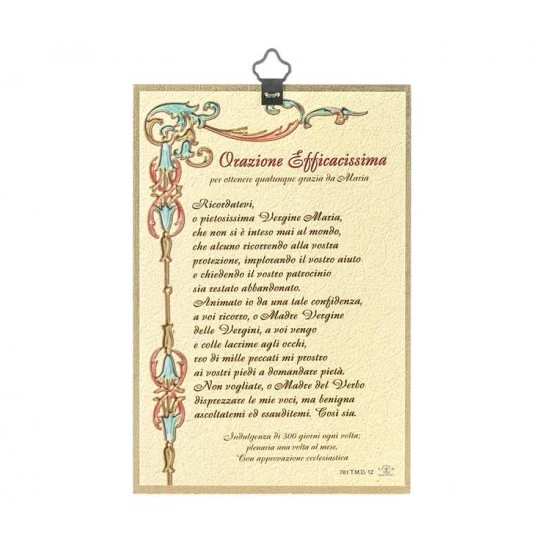 Orazione Efficacissima
per ottenere qualunque grazia da Maria
Ricordatevi,
o pietosissima Vergine Maria,
che non si è inteso mai al mondo,
che alcuno ricorrendo alla vostra
protezione, implorando il vostro aiuto
e chiedendo il vostro patrocinio
sia restato abbandonato.
Animato io da una tale confidenza,
a voi ricorro, o Madre Vergine
delle Vergini, a voi vengo
e colle lacrime agli occhi,
reo di mille peccati mi prostro
ai vostri piedi a domandare pietà.
Non vogliate, o Madre del Verbo
disprezzare le mie voci, ma benigna
ascoltatemi ed esauditemi. Così sia.
Indulgenza di 300 giorni ogni volta;
plenaria una volta al mese.
Con approvazione ecclesiastica
761 T.M.D. 12